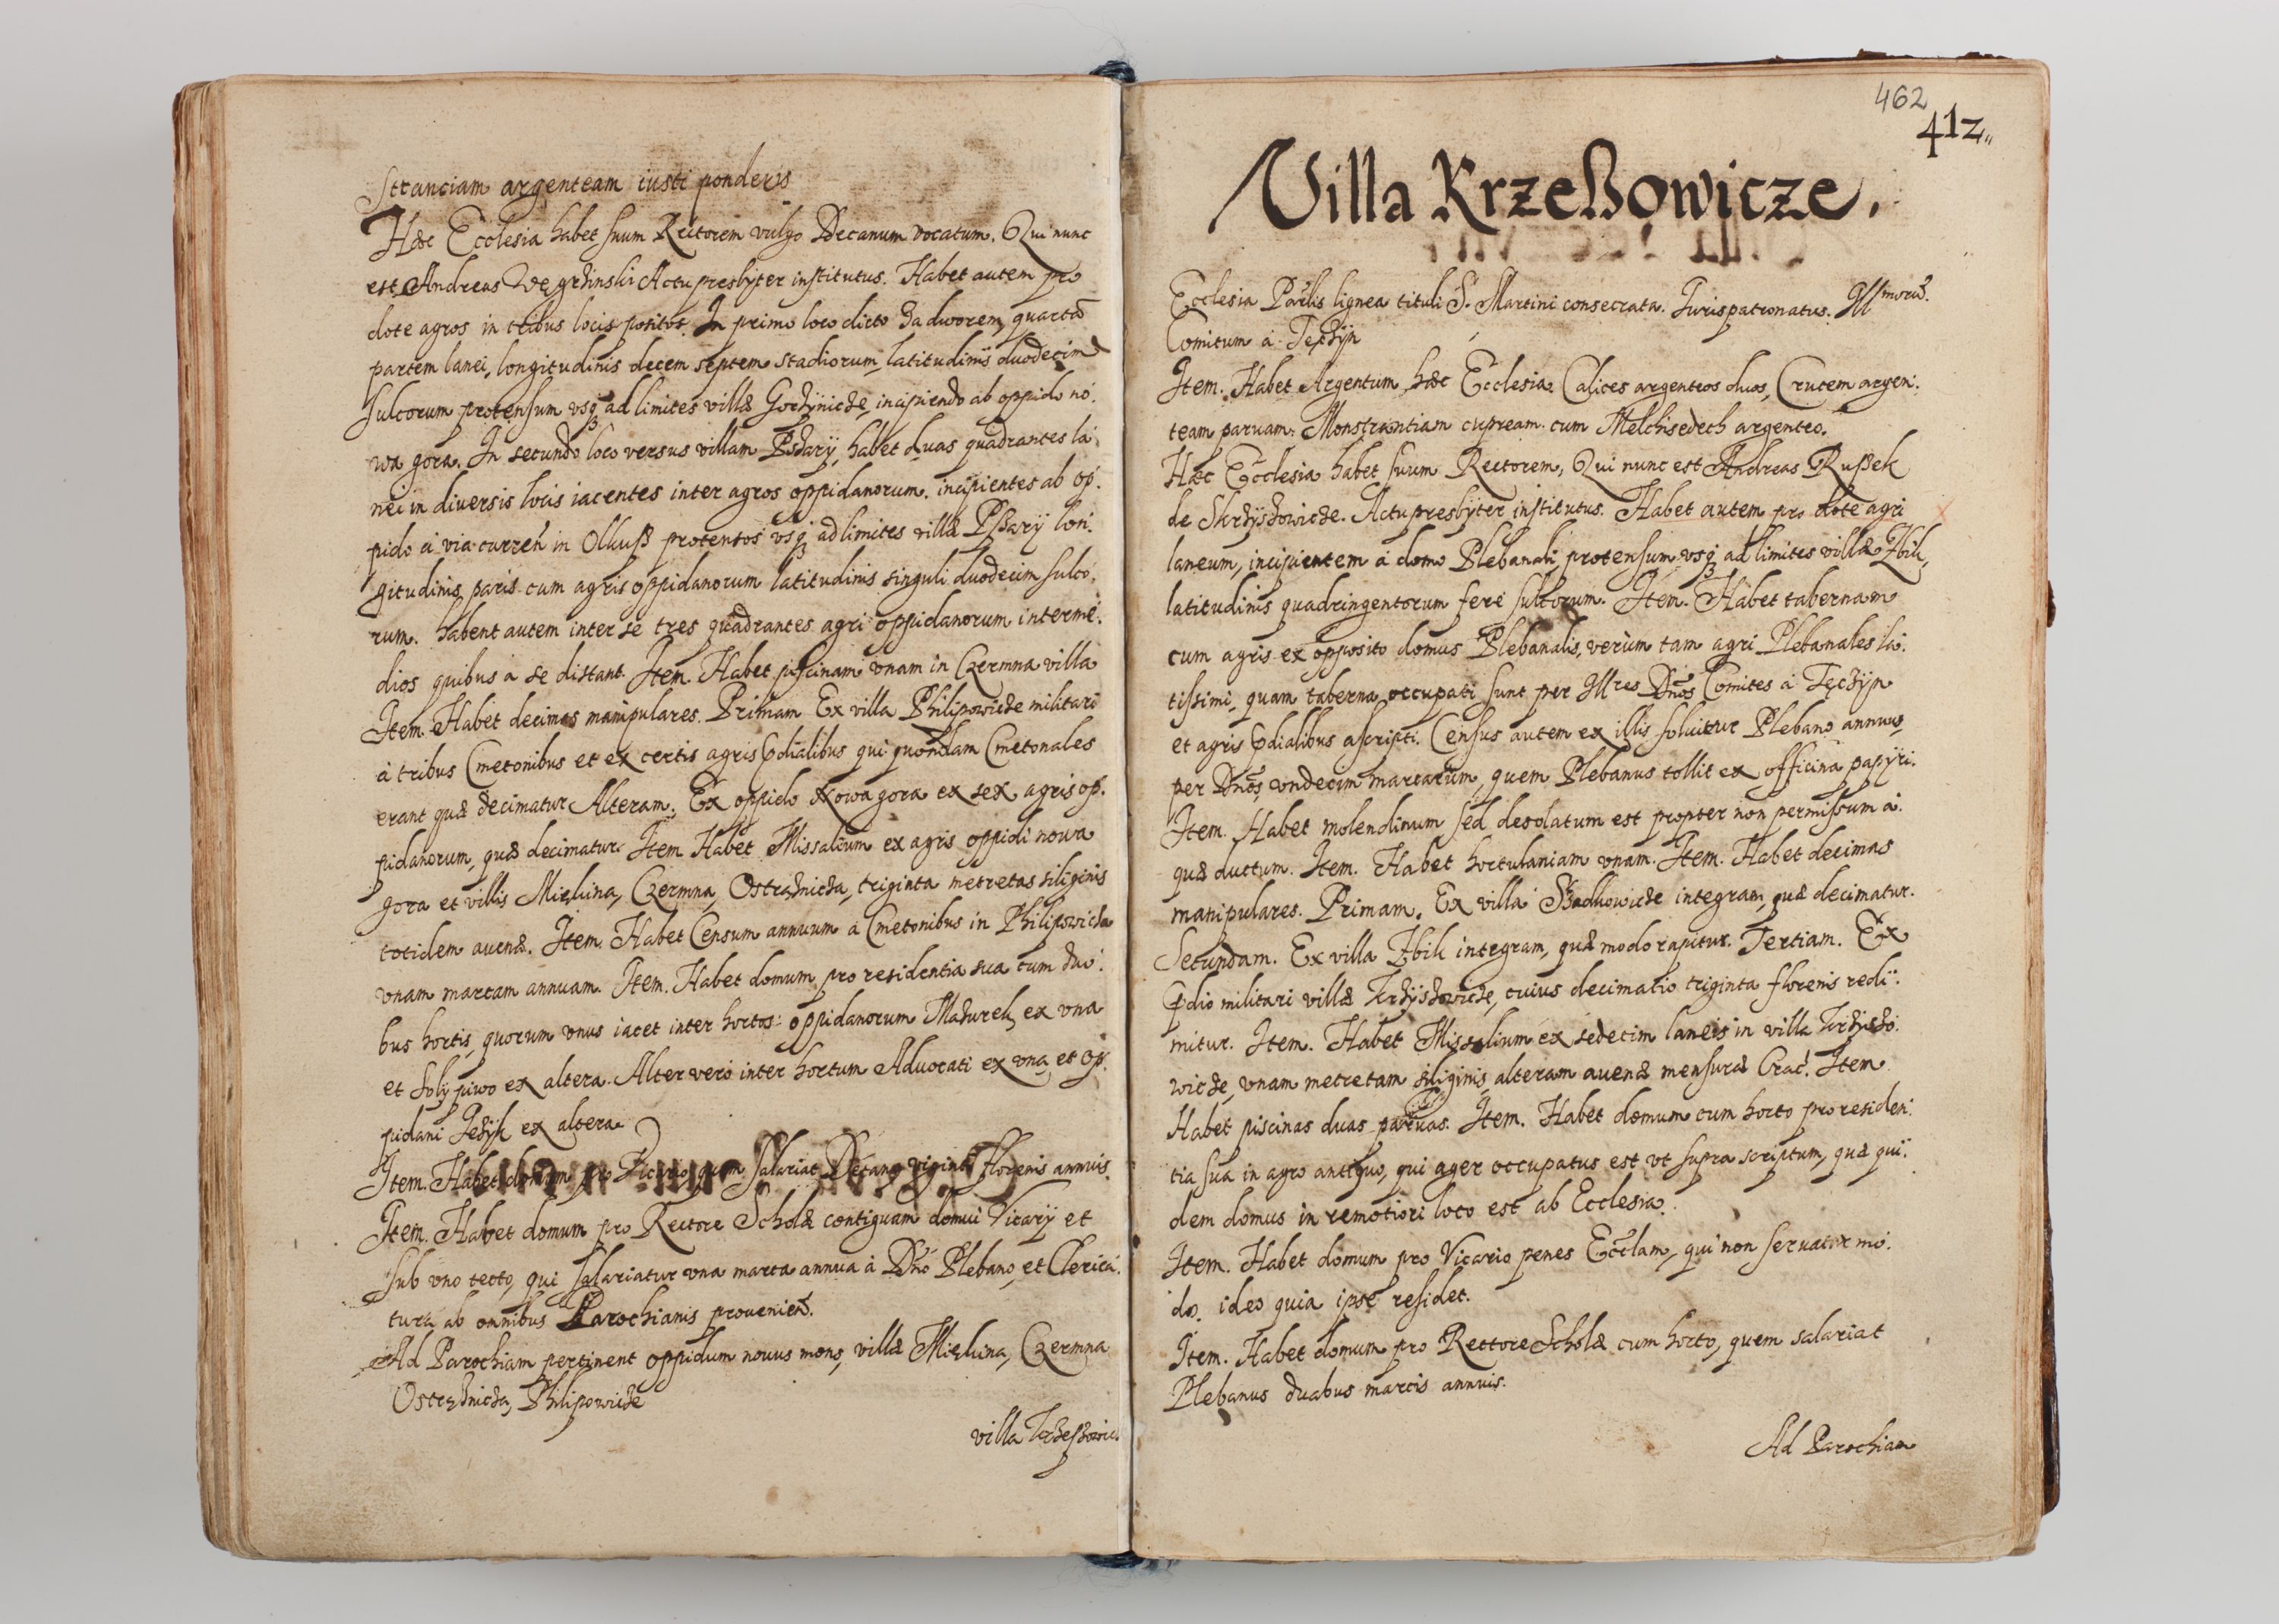 stranciam argenteam iusti ponderis
Hæc Ecclesia habet suum Rectorem vulgo Decanum vocatum. Qui nunc
est Andreas Węgrzinski Actu presbÿter institutus. Habet autem pro
dote agros in tribus locis positos. In primo loco dicto Zadworem, quartã
partem lanei, longitudinis decem septem stadiorum latitudinis duodecim
sulcorum protensum vsq3 ad limites villæ Gorzÿnicze, incipiendo ab oppido no:
wa gora. In secundo loco versus villam Psarÿ, habet duas quadrantes la:
nei in diversis locis iacentes inter agros oppidanorum. incipientes ab op:
pido à via curreñ in Olkuß protensos vsq3 ad limites villæ Psarÿ lon:
gitudinis paris cum agris oppidanorum latitudinis singuli duodecim sulco:
rum. habent autem inter se tres quadrantes agri oppidanorum interme:
dios quibus à se distant. Item. Habet piscinam vnam in Czermna villa
Item. Habet decimas manipulares. Primam Ex villa Philipowicze militari
à tribus Cmetonibus et ex certis agris Pdialibus qui quondam Cmetonales
erant quæ decimatur Alteram. Ex oppido Nowa gora ex sex agris op:
pidanorum, quæ decimatur. Item Habet Missalium ex agris oppidi nowa
gora et villis Miękina, Czermna, Ostrężnicza, triginta metretas siliginis
totidem auenæ. Item. Habet Censum annuum à Cmetonibus in Philipowicza
vnam marcam annuam. Item. Habet domum pro residentia sua cum duo:
bus hortis, quorum vnus iacet inter hortos oppidanorum Mazurek ex vna
et Solÿ piwo ex altera. Alter verò inter hortum Aduocati ex vna et op:
pidani ex altera
Item. Habet domum pro Vicario, quem salariat Decanus viginti florenis annuis.
Item. Habet domum pro Rectore Scholæ contiguam domui Vicarÿ et
sub vno tecto, qui salariatur vna marca annua à Dnõ Plebano, et Clerica:
tura ab omnibus Parochianis prouenieñ.
Ad Parochiam pertinent oppidum nouus mons, villæ Miękina, Czermna
Ostrężnicza, Philipowicze
villa Krzeszowic:
462
41z„
Villa Krzeßowicze.
Ecclesia Parlis lignea tituli S. Martini consecrata. Iurispatronatus. Illmorũ.
Comitum à Tęczÿn
Item. Habet Argentum hæc Ecclesia. Calices argenteos duos, Crucem argen:
team paruam. Monstrantiam cupream cum Melchisedech argenteo.
Hæc Ecclesia habet suum Rectorem, Qui nunc est Andreas Rußek
de Skrzÿszowicze. Actu presbÿter institutus. Habet autem pro dote agri
laneum, incipientem à domo Plebanali, protensum vsq3 ad limites villæ Zbik,
latitudinis quadringentorum ferè sulcorum. Item. Habet tabernam
cum agris ex opposito domus Plebanalis, verùm tam agri Plebanales la:
tissimi, quam taberna occupati sunt per Illres Dnõs Comites à Tęczÿn
et agris Pdialibus ascripti. Census autem ex illis soluitur Plebano annuus
per Dnõs vndecim marcarum, quem Plebanus tollit ex officina papÿri.
Item. Habet molendinum sed desolatum est propter non permissum a:
quæ ductum. Item. Habet hortulaniam vnam. Item. Habet decimas
manipulares. Primam. Ex villa Siadlowicze integram, quæ decimatur.
Secundam. Ex villa Zbik integram, quæ modo rapitur. Tertiam. Ex
Pdio militari villæ Krzÿszowicze, cuius decimatio triginta florenis redi:
mitur. Item. Habet Missalium ex sedecim laneis in villa Krzÿszo:
wicze, vnam metretam siliginis alteram auenæ mensuræ Crac. Item
Habet piscinas duas paruas. Item. Habet domum cum horto pro residen:
tia sua in agro antiquo, qui ager occupatus est vt supra scriptum, quæ qui:
dem domus in remotiori loco est ab Ecclesia.
Item. Habet domum pro Vicario penes Eccłam, qui non seruatur mo:
do. ideo quia ipse residet.
Item. Habet domum pro Rectore Scholæ cum horto, quem salariat
Plebanus duabus marcis annuis.
Ad Parochiam